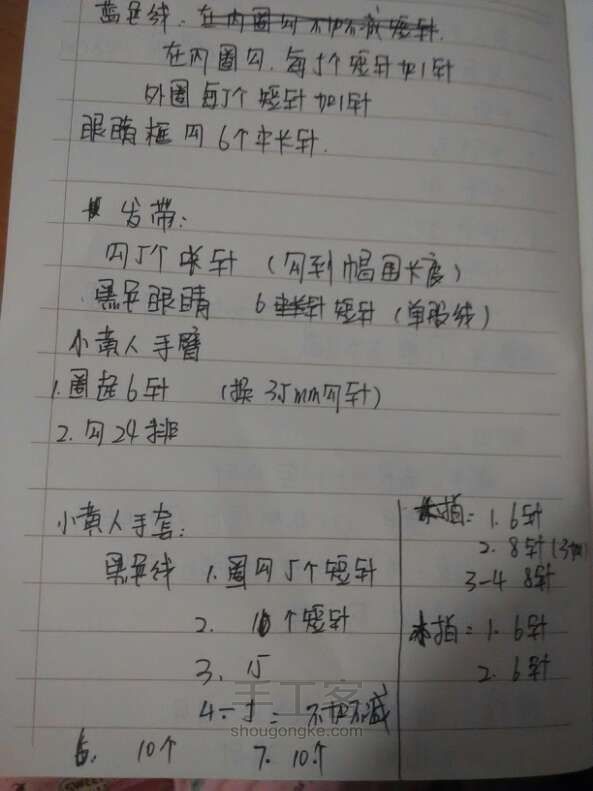 蓝色线: 在内圈勾 不加不减 短针.
在内圈勾. 每5个短针加1针
外圈 每5个短针加1针
眼睛框 勾6个中长针.
发带:
勾5个长针 (勾到帽围长度)
黑色眼睛 6 中长针 短针 (单股线)
小黄人手臂
1. 圈起6针 (换3.5mm勾针)
2. 勾24排
小黄人手套:
黑色线 1. 圈勾5个短针
2. 10个短针
3. 15
4-5 = 不加不减
6. 10个 7. 10个
拇指: 1. 6针
2. 8针 (3
3-4 8针
指= 1. 6针
2. 6针
手工客
shougongke.com